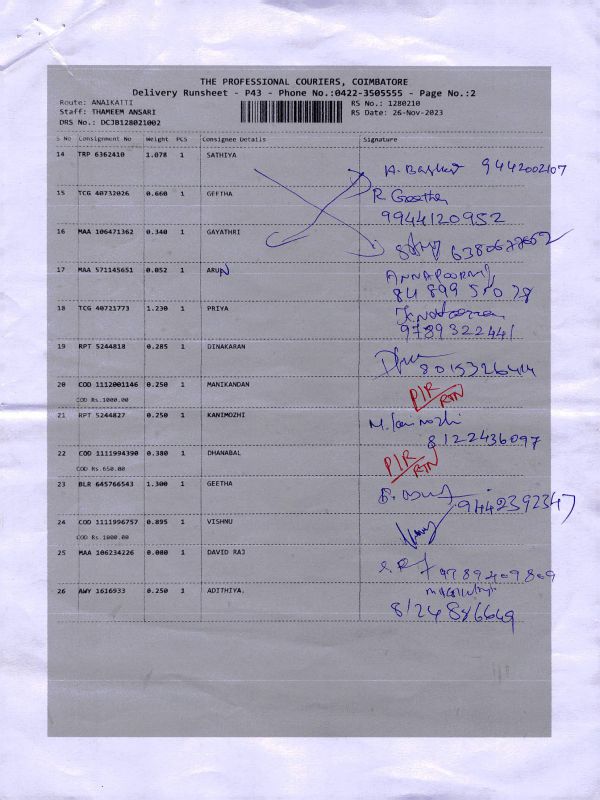 THE PROFESSIONAL COURIERS, COIMBATORE
Delivery Runsheet - P43 - Phone No.:0422-3505555 - Page No.:2
Route: ANAIKATTI RS No.: 1280210
Staff: THAMEEM ANSARI RS Date: 26-Nov-2023
DRS No.: DCJB128021002
S No Consignment No Weight PCS Consignee Details Signature
14 TRP 6362410 1.078 1 SATHIYA
9442002107
15 TCG 40732026 0.660 1 GEETHA R Geetha
9944120952
16 MAA 106471362 0.340 1 GAYATHRI
17 MAA 571145651 0.052 1 ARUN
18 TCG 40721773 1.230 1 PRIYA
9789322441
19 RPT 5244818 0.285 1 DINAKARAN
8015326414
20 COD 1112001146 0.250 1 MANIKANDAN P/R RTN
COD Rs.1000.00
21 RPT 5244827 0.250 1 KANIMOZHI M. Kanimozhi
8122436097
22 COD 1111994390 0.380 1 DHANABAL P/R RTN
COD Rs.650.00
23 BLR 645766543 1.300 1 GEETHA
9442392347
24 COD 1111996757 0.895 1 VISHNU
COD Rs.1000.00
25 MAA 106234226 0.080 1 DAVID RAJ
9789409809
26 AWY 1616933 0.250 1 ADITHIYA.